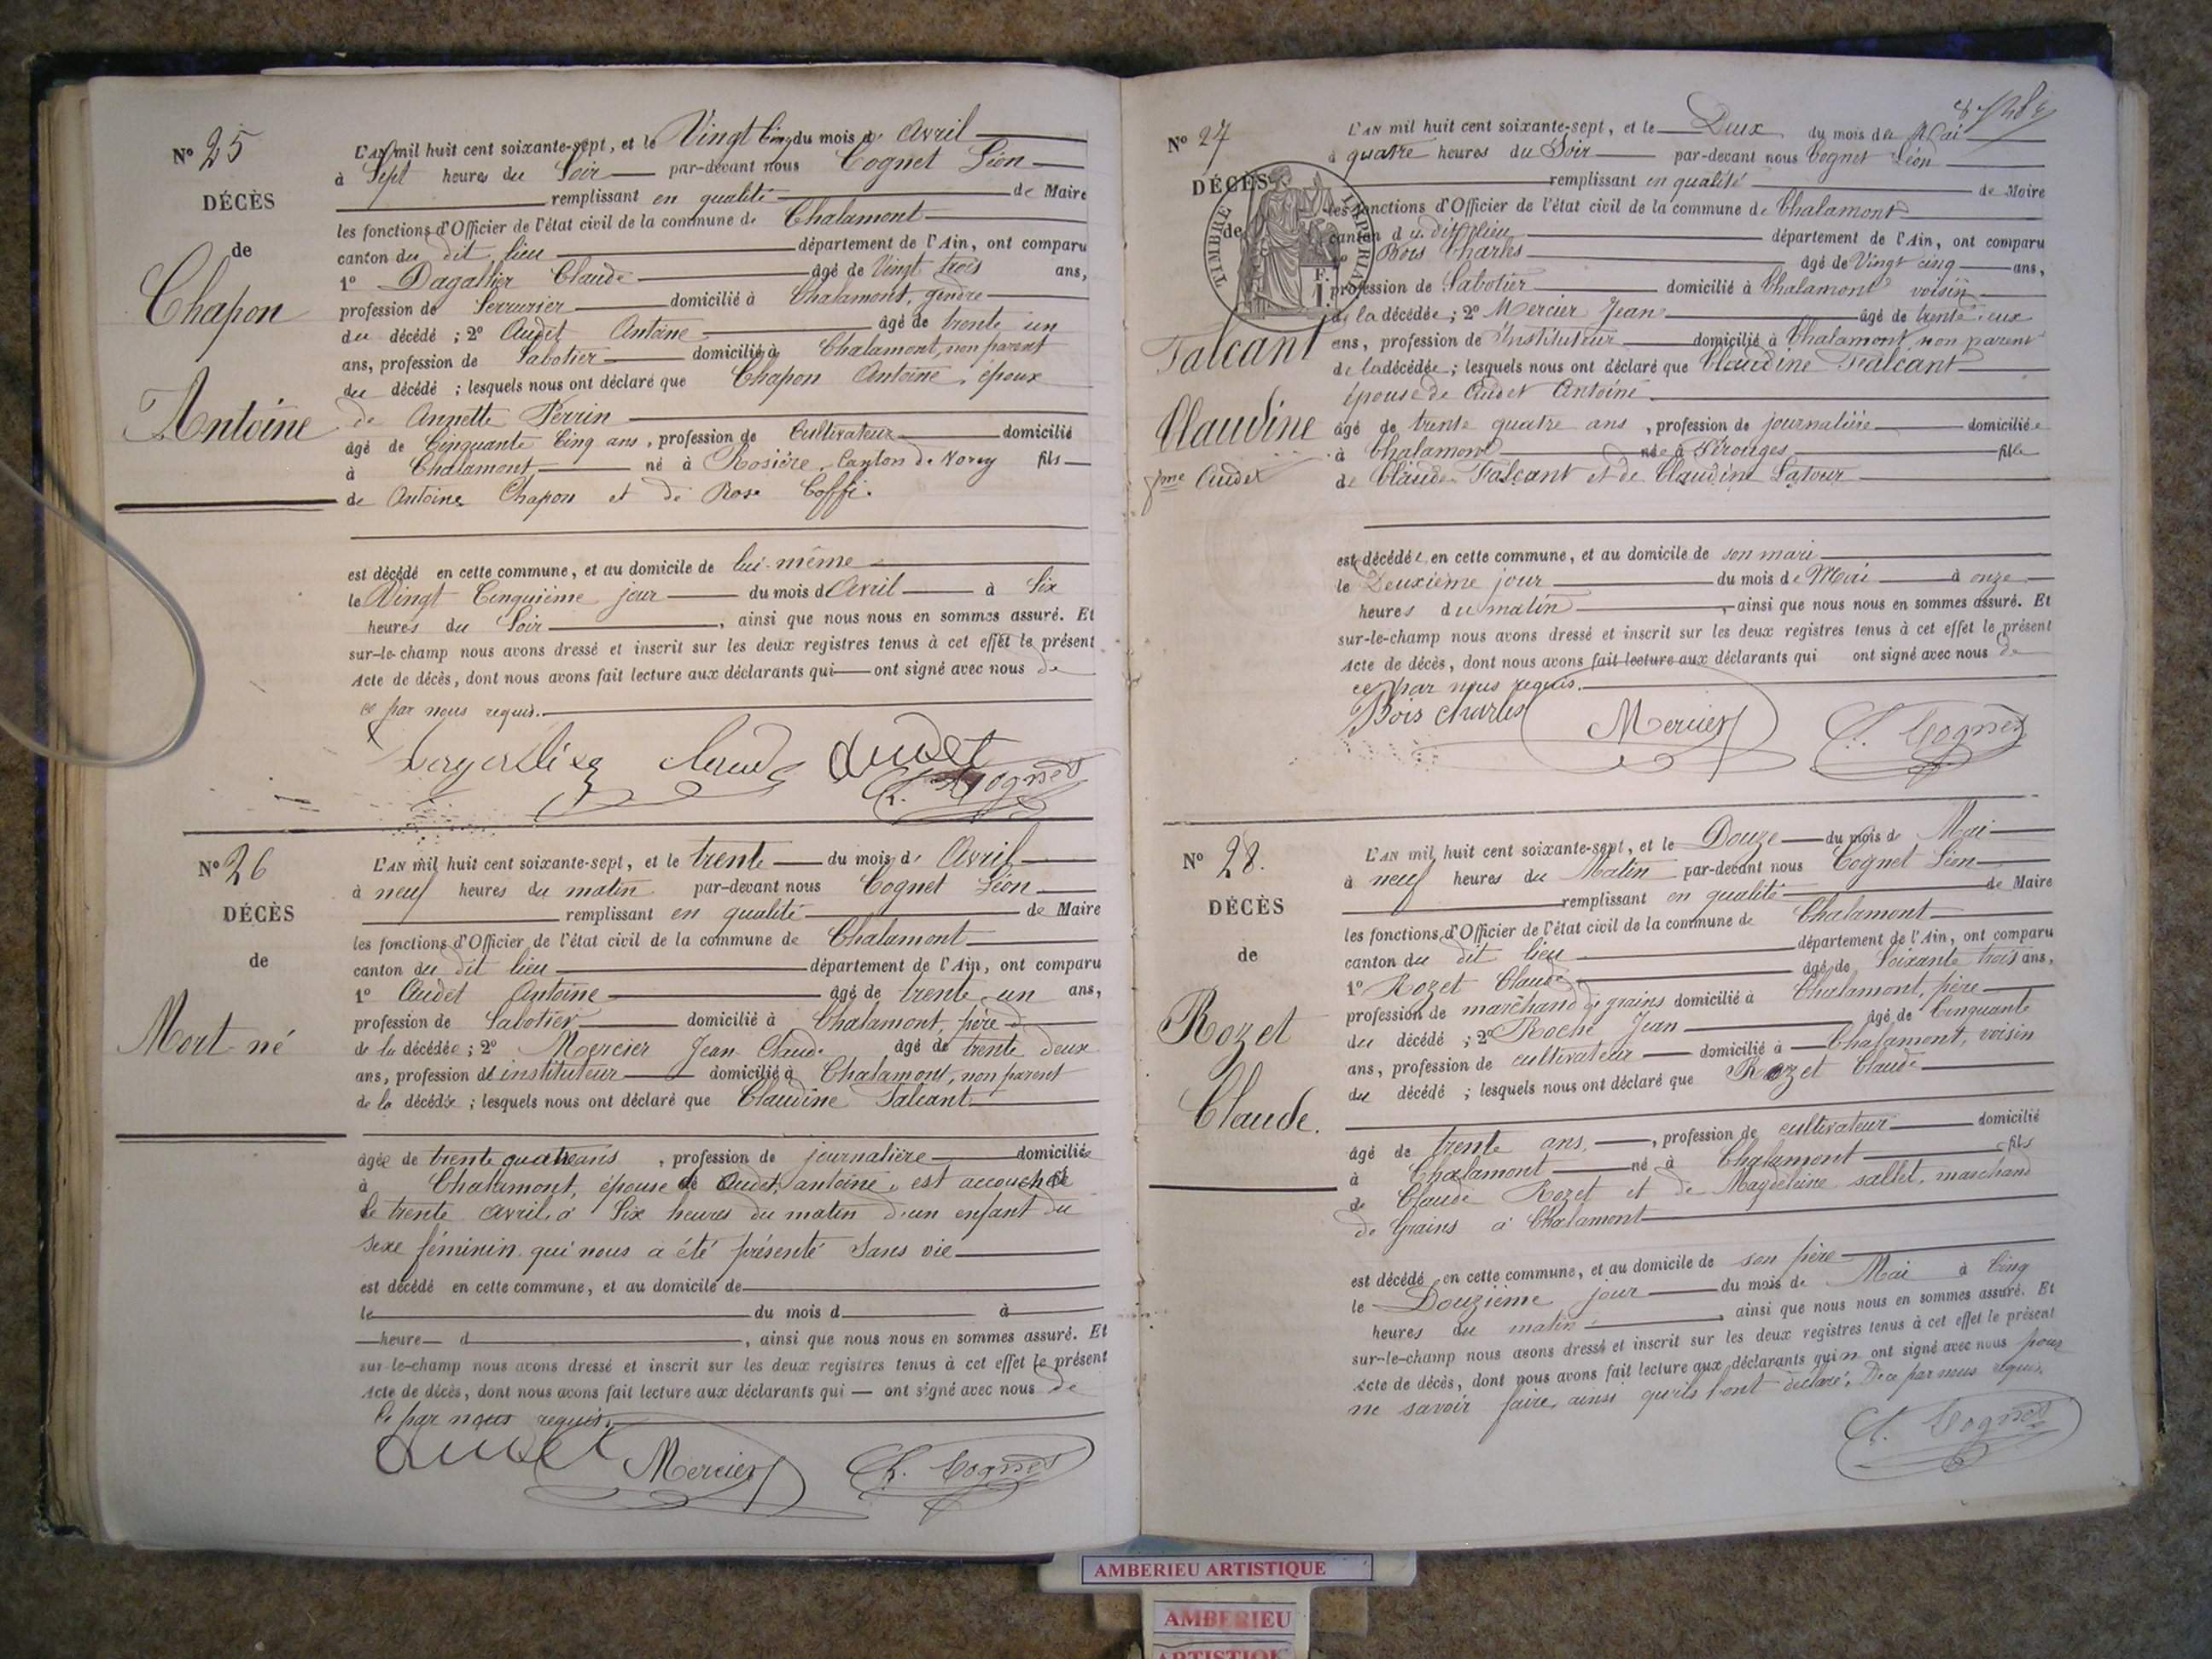 N° 25
DÉCÈS
de
Chapon
Antoine
L'AN mil huit cent soixante-sept, et le Vingt Cinq du mois d' Avril
à Sept heures du Soir par-devant nous Cognet Léon
remplissant en qualité de Maire
les fonctions d'Officier de l'état civil de la commune de Chalamont
canton du dit lieu département de l'Ain, ont comparu
1° Dagallier Claude âgé de Vingt trois ans,
profession de Serrurier domicilié à Chalamont, gendre
du décédé ; 2° Audet Antoine âgé de trente un
ans, profession de Sabotier domicilié à Chalamont, non parent
du décédé ; lesquels nous ont déclaré que Chapon Antoine, époux
de Annette Perrin
âgé de Cinquante Cinq ans, profession de Cultivateur domicilié
à Chalamont né à Rosière, Canton de fils
de Antoine Chapon et de Rose Coffi.
est décédé en cette commune, et au domicile de lui-même
le Vingt Cinquième jour du mois d'Avril à Six
heures du Soir, ainsi que nous nous en sommes assuré. Et
sur-le-champ nous avons dressé et inscrit sur les deux registres tenus à cet effet le présent
Acte de décès, dont nous avons fait lecture aux déclarants qui ont signé avec nous de
ce par nous requis.
Claude Audet
L. Cognet
N° 26
DÉCÈS
de
Mort-né
L'AN mil huit cent soixante-sept, et le trente du mois d' Avril
à neuf heures du matin par-devant nous Cognet Léon
remplissant en qualité de Maire
les fonctions d'Officier de l'état civil de la commune de Chalamont
canton du dit lieu département de l'Ain, ont comparu
1° Audet Antoine âgé de trente un ans,
profession de Sabotier domicilié à Chalamont, père
de la décédée ; 2° Mercier Jean Claude âgé de trente deux
ans, profession d'instituteur domicilié à Chalamont, non parent
de la décédée ; lesquels nous ont déclaré que Claudine Falcant
âgée de trente quatre ans, profession de journalière domiciliée
à Chalamont, épouse de Audet, antoine, est accouchée
le trente avril à Six heures du matin d'un enfant du
sexe féminin qui nous a été présenté Sans vie
est décédé en cette commune, et au domicile de
le du mois d à
heure d, ainsi que nous nous en sommes assuré. Et
sur-le-champ nous avons dressé et inscrit sur les deux registres tenus à cet effet le présent
Acte de décès, dont nous avons fait lecture aux déclarants qui ont signé avec nous de
ce par nous requis.
Audet Mercier L. Cognet
N° 27
DÉCÈS
de
TIMBRE IMPÉRIAL
Falcant
Claudine
fme Audet
L'AN mil huit cent soixante-sept, et le Deux du mois de Mai
à quatre heures du Soir par-devant nous Cognet Léon
remplissant en qualité de Maire
les fonctions d'Officier de l'état civil de la commune de Chalamont
canton du dit lieu département de l'Ain, ont comparu
1° Bois Charles âgé de Vingt cinq ans,
profession de Sabotier domicilié à Chalamont voisin
de la décédée ; 2° Mercier Jean âgé de trente deux
ans, profession de Instituteur domicilié à Chalamont, non parent
de la décédée ; lesquels nous ont déclaré que Claudine Falcant
épouse de Audet Antoine.
âgé de trente quatre ans, profession de journalière domiciliée
à Chalamont née à Pérouges fille
de Claude Falcant et de Claudine Latour
est décédée en cette commune, et au domicile de son mari
le Deuxième jour du mois de Mai à onze
heures du matin, ainsi que nous nous en sommes assuré. Et
sur-le-champ nous avons dressé et inscrit sur les deux registres tenus à cet effet le présent
Acte de décès, dont nous avons fait lecture aux déclarants qui ont signé avec nous de
ce par nous requis.
Bois charles Mercier L. Cognet
N° 28.
DÉCÈS
de
Rozet
Claude.
L'AN mil huit cent soixante-sept, et le Douze du mois de Mai
à neuf heures du Matin par-devant nous Cognet Léon
remplissant en qualité de Maire
les fonctions d'Officier de l'état civil de la commune de Chalamont
canton du dit lieu département de l'Ain, ont comparu
1° Rozet Claude âgé de Soixante trois ans,
profession de marchand de grains domicilié à Chalamont, père
du décédé ; 2° Roche Jean âgé de Cinquante
ans, profession de cultivateur domicilié à Chalamont, voisin
du décédé ; lesquels nous ont déclaré que Rozet Claude
âgé de trente ans, profession de cultivateur domicilié
à Chalamont né à Chalamont fils
de Claude Rozet et de Magdeleine sallet, marchand
de Grains à Chalamont
est décédé en cette commune, et au domicile de son père
le Douzième jour du mois de Mai à Cinq
heures du matin, ainsi que nous nous en sommes assuré. Et
sur-le-champ nous avons dressé et inscrit sur les deux registres tenus à cet effet le présent
Acte de décès, dont nous avons fait lecture aux déclarants qui n'ont signé avec nous pour
ne savoir faire, ainsi qu'ils l'ont déclaré, De ce par nous requis.
L. Cognet
AMBERIEU ARTISTIQUE
AMBERIEU
ARTISTIQUE